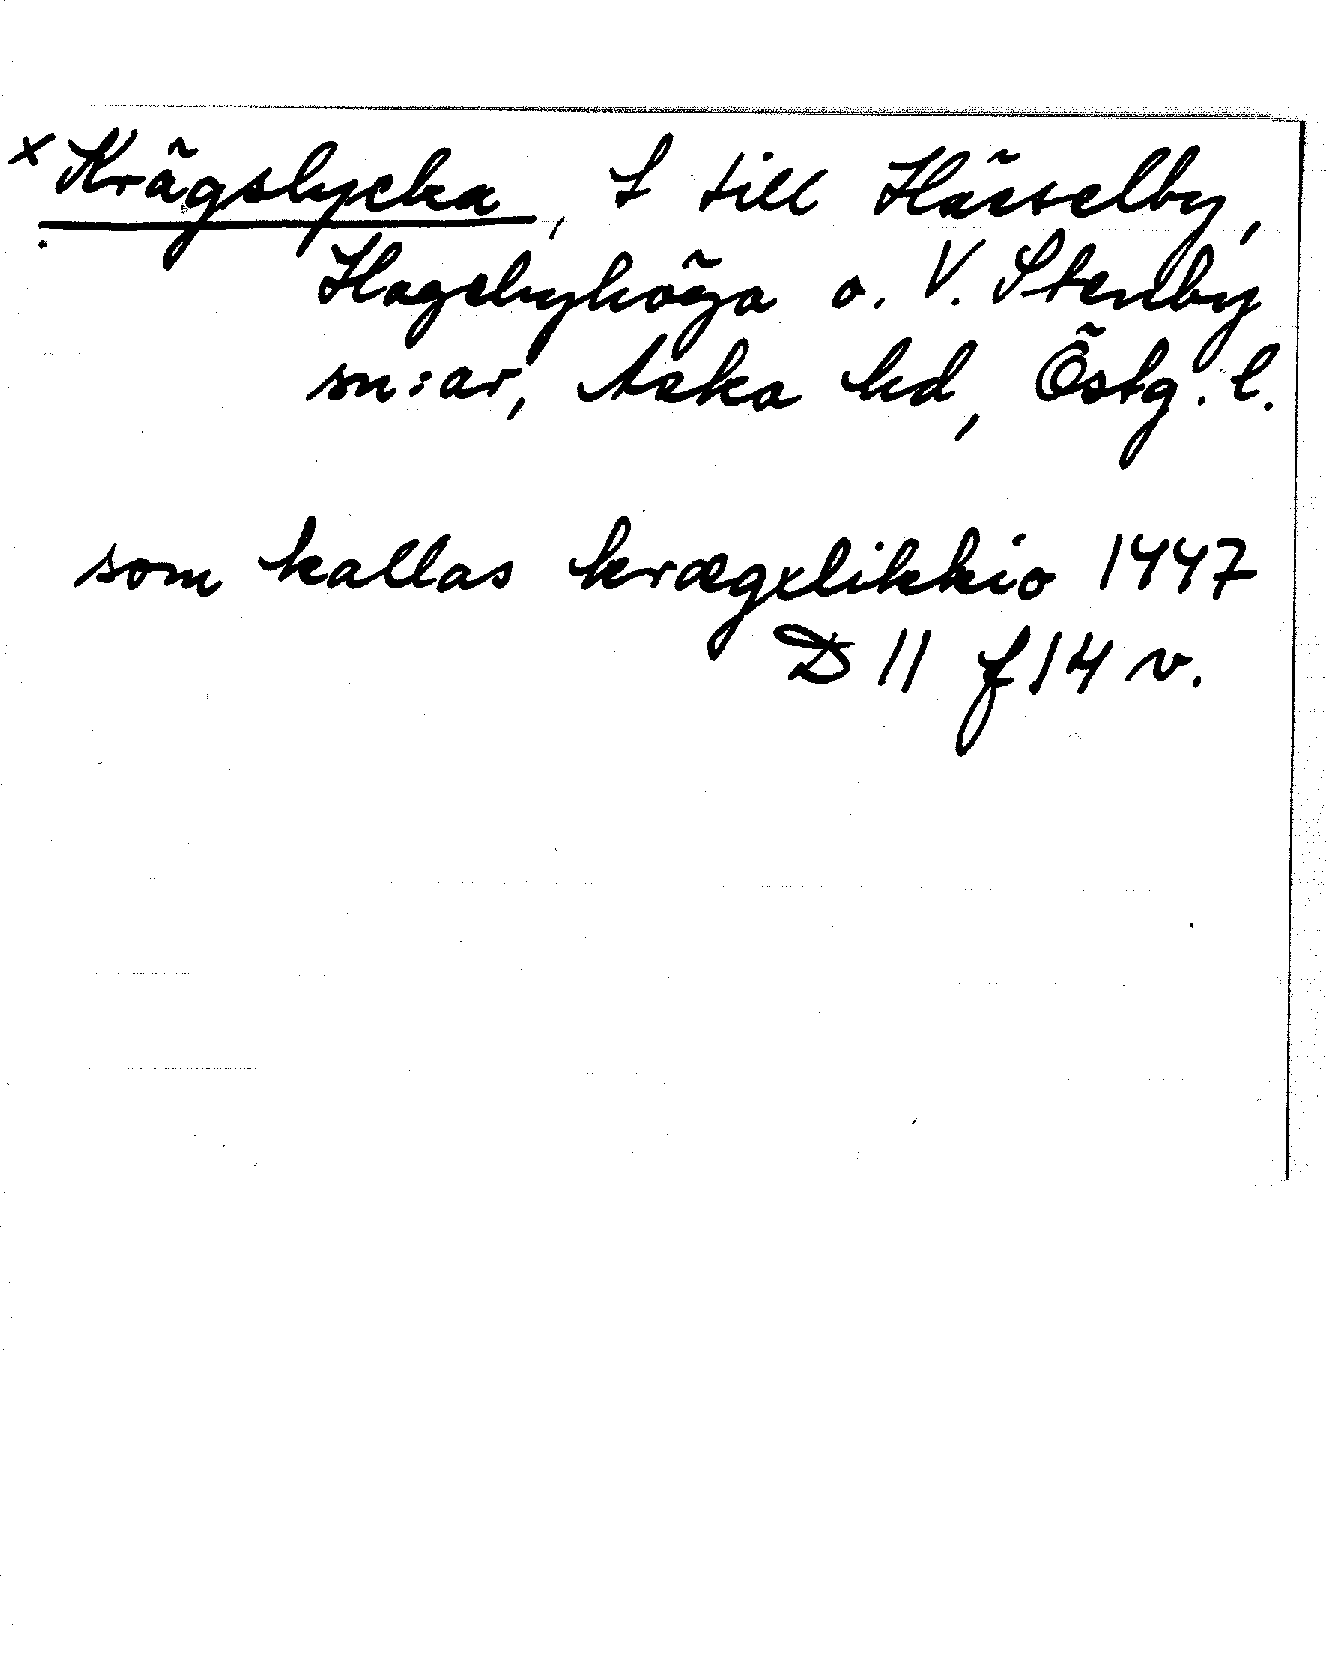 x Krägslycka, f till Hässelby,
Hagebyhöga o. V. Stenby
sn:ar, Aska hd, Östg. l.
som kallas krægxlikkio 1447
D 11 f 14 v.